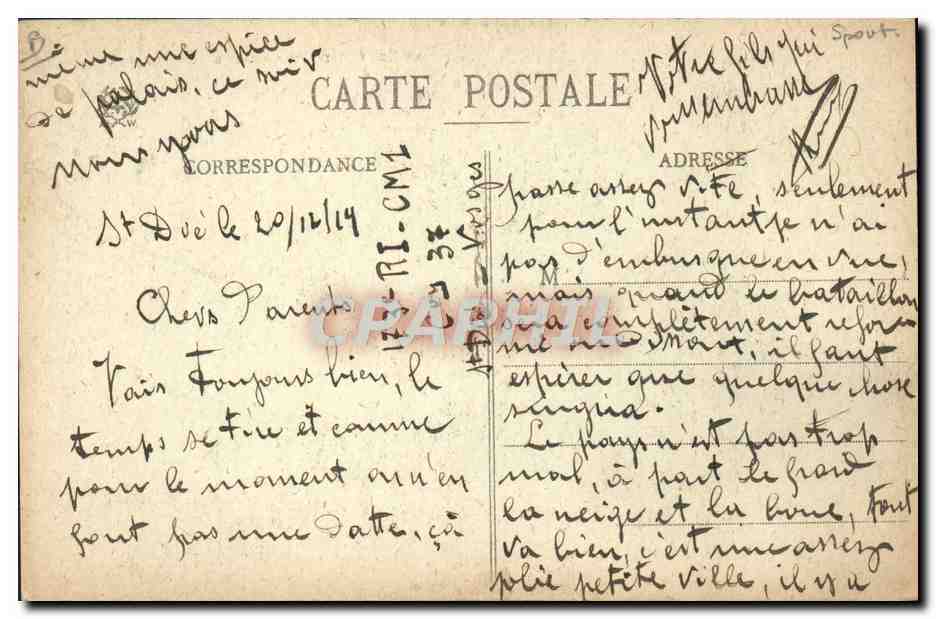 CARTE POSTALE
CORRESPONDANCE
ADRESSE
M
Spout.
B
St Dié le 20/12/14
Chers Parents
Vais Toujours bien, le
temps se tire et comme
pour le moment on n'en
fout pas une datte, çà
passe assez vite, seulement
pour l'instant je n'ai
pas d'embusque en vue,
mais quand le bataillon
sera complètement refor
mé, il faut
espérer que quelque chose
Le pays n'est pas trop
mal, à part le froid
la neige et la boue, tout
va bien, c'est une assez
jolie petite ville, il y a
même une espèce
de palais, ce soir
nous
Votre fils qui
vous embrasse
RI-CM1
37
St Dié Vosges
CPAPHIL